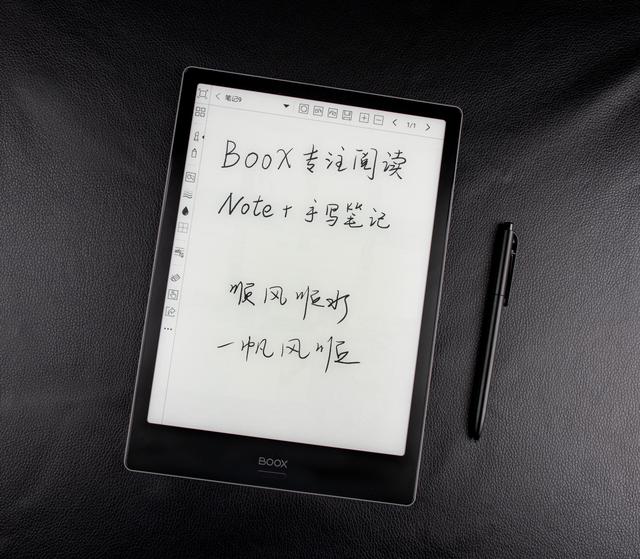 笔记9
1/1
BOOX 专注阅读
Note+ 手写笔记
顺风顺水
一帆风顺
BOOX